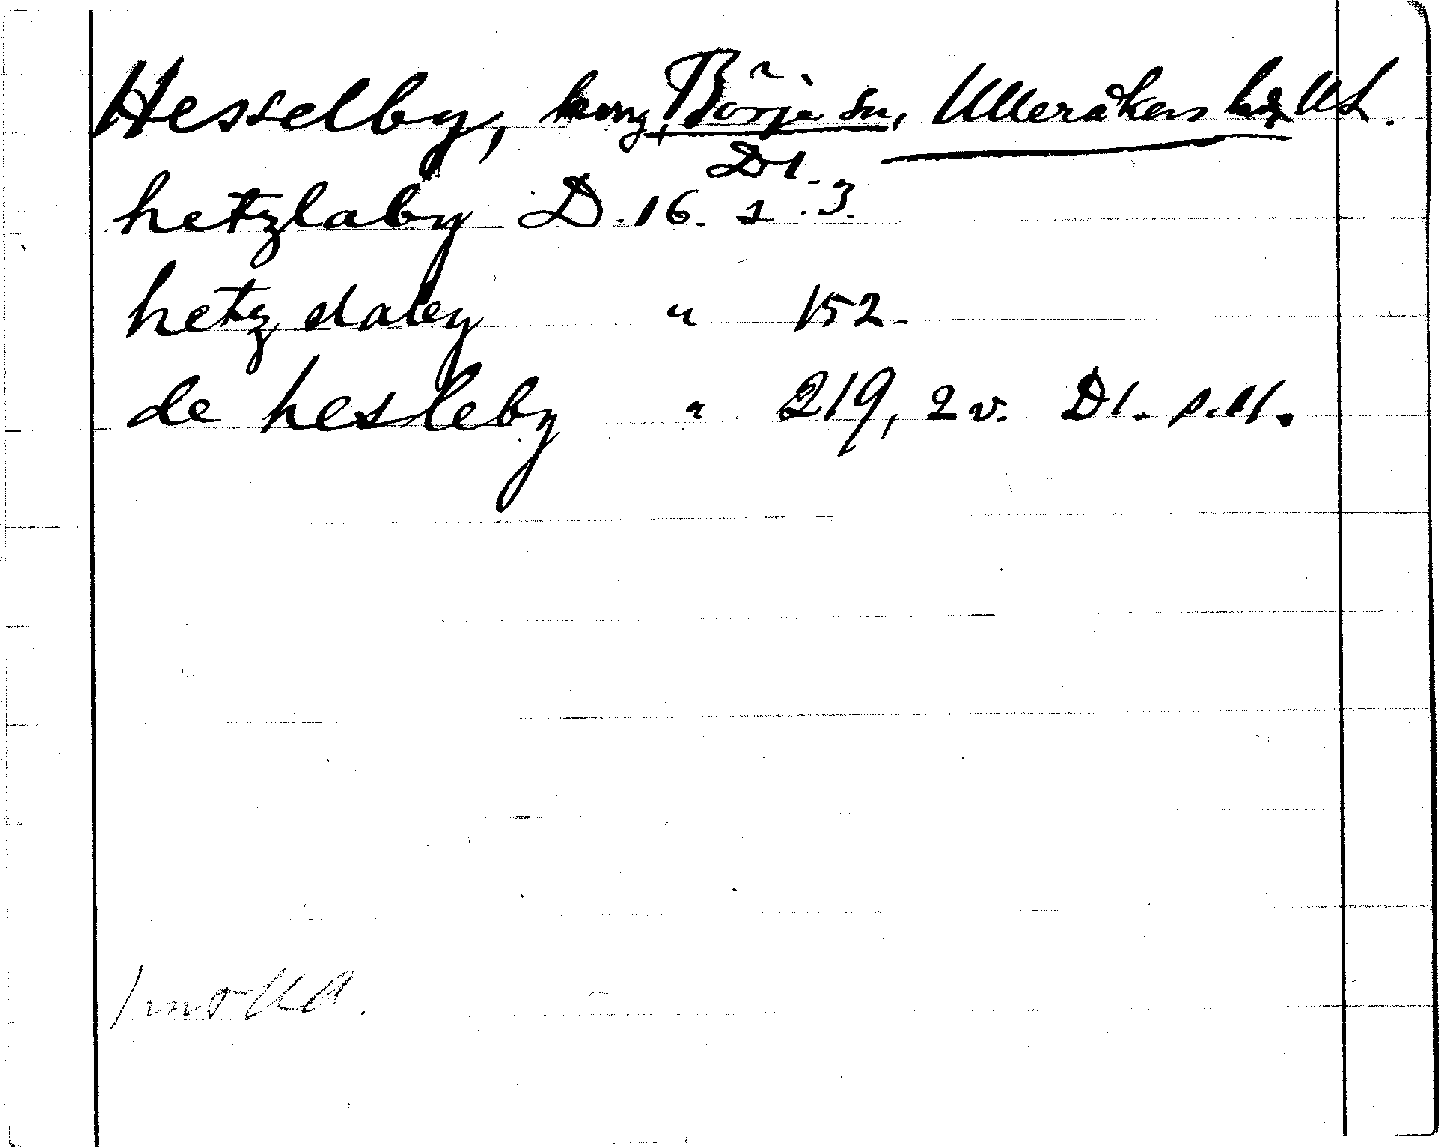 Hesselby, Börje sn, Ulleråkers hd, UL.
D1.
hetzlaby D.16. 2. 3.
hetzslaby " 152.
de hesleby " 219, 2 v. D1.